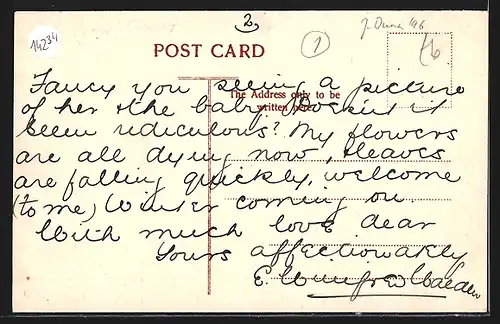 2.
14234
1
POST CARD
The Address only to be
written here.
Fancy you seeing a picture
of her & the baby, Hasn't it
been ridiculous? My flowers
are all dying now, & leaves
are falling quickly, welcome
(to me) Winter coming on.
With much love dear
Yours affectionately
E.